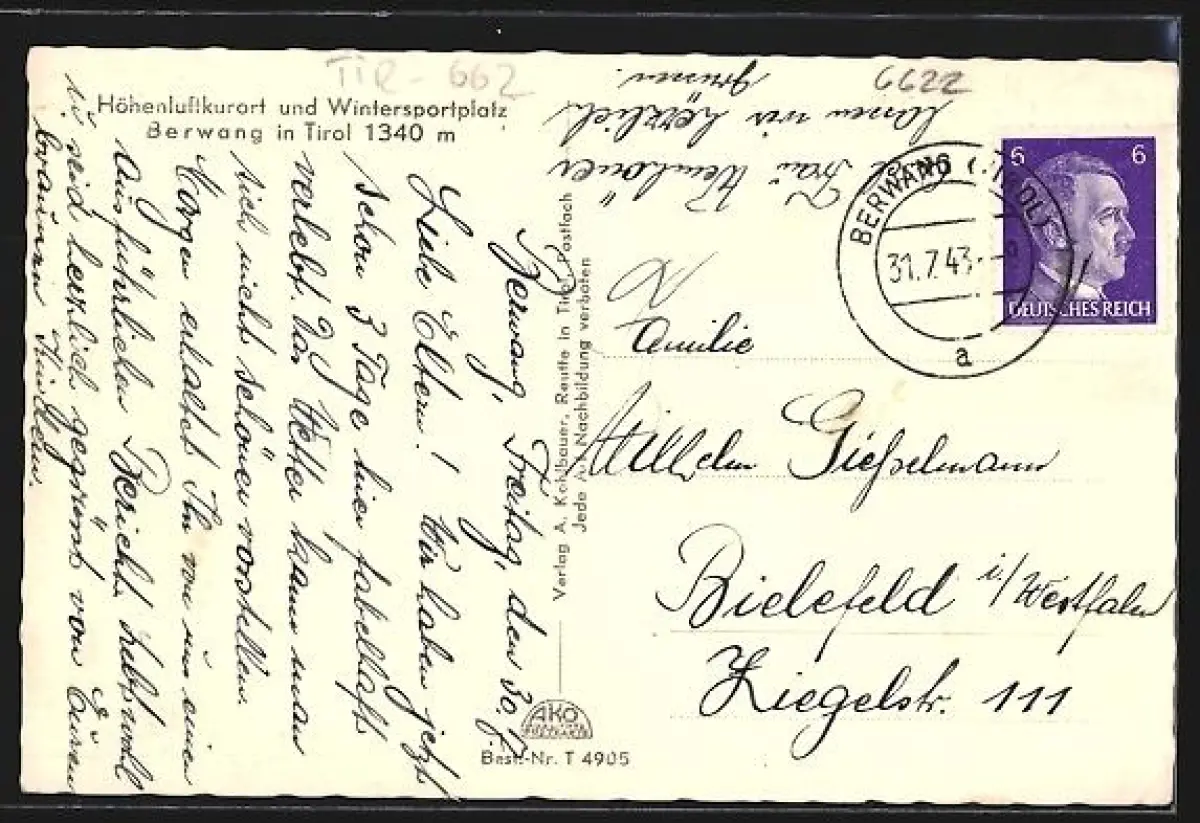 TIR - 662
6622
Höhenluftkurort und Wintersportplatz
Berwang in Tirol 1340 m
Berwang, Freitag, den 30.7.
Liebe Eltern! Wir haben jetzt
schon 3 Tage hier fabelhaft
verlebt. Das Wetter kann man
sich nicht schöner vorstellen.
Morgen erhaltet Ihr von uns einen
ausführlichen Bericht. Lebt wohl
u. seid herzlich gegrüsst von Euren
braunen Kindern.
Frau
lassen wir herzlich
grüssen.
Verlag A. Kohlbauer, Reutte in Tirol, Postfach
Jede Art Nachbildung verboten
AKO
Best.-Nr. T 4905
BERWANG (TIROL)
31.7.43
a
6 6
DEUTSCHES REICH
Familie
Wilhelm Gießelmann
Bielefeld i/Westfalen
Ziegelstr. 111